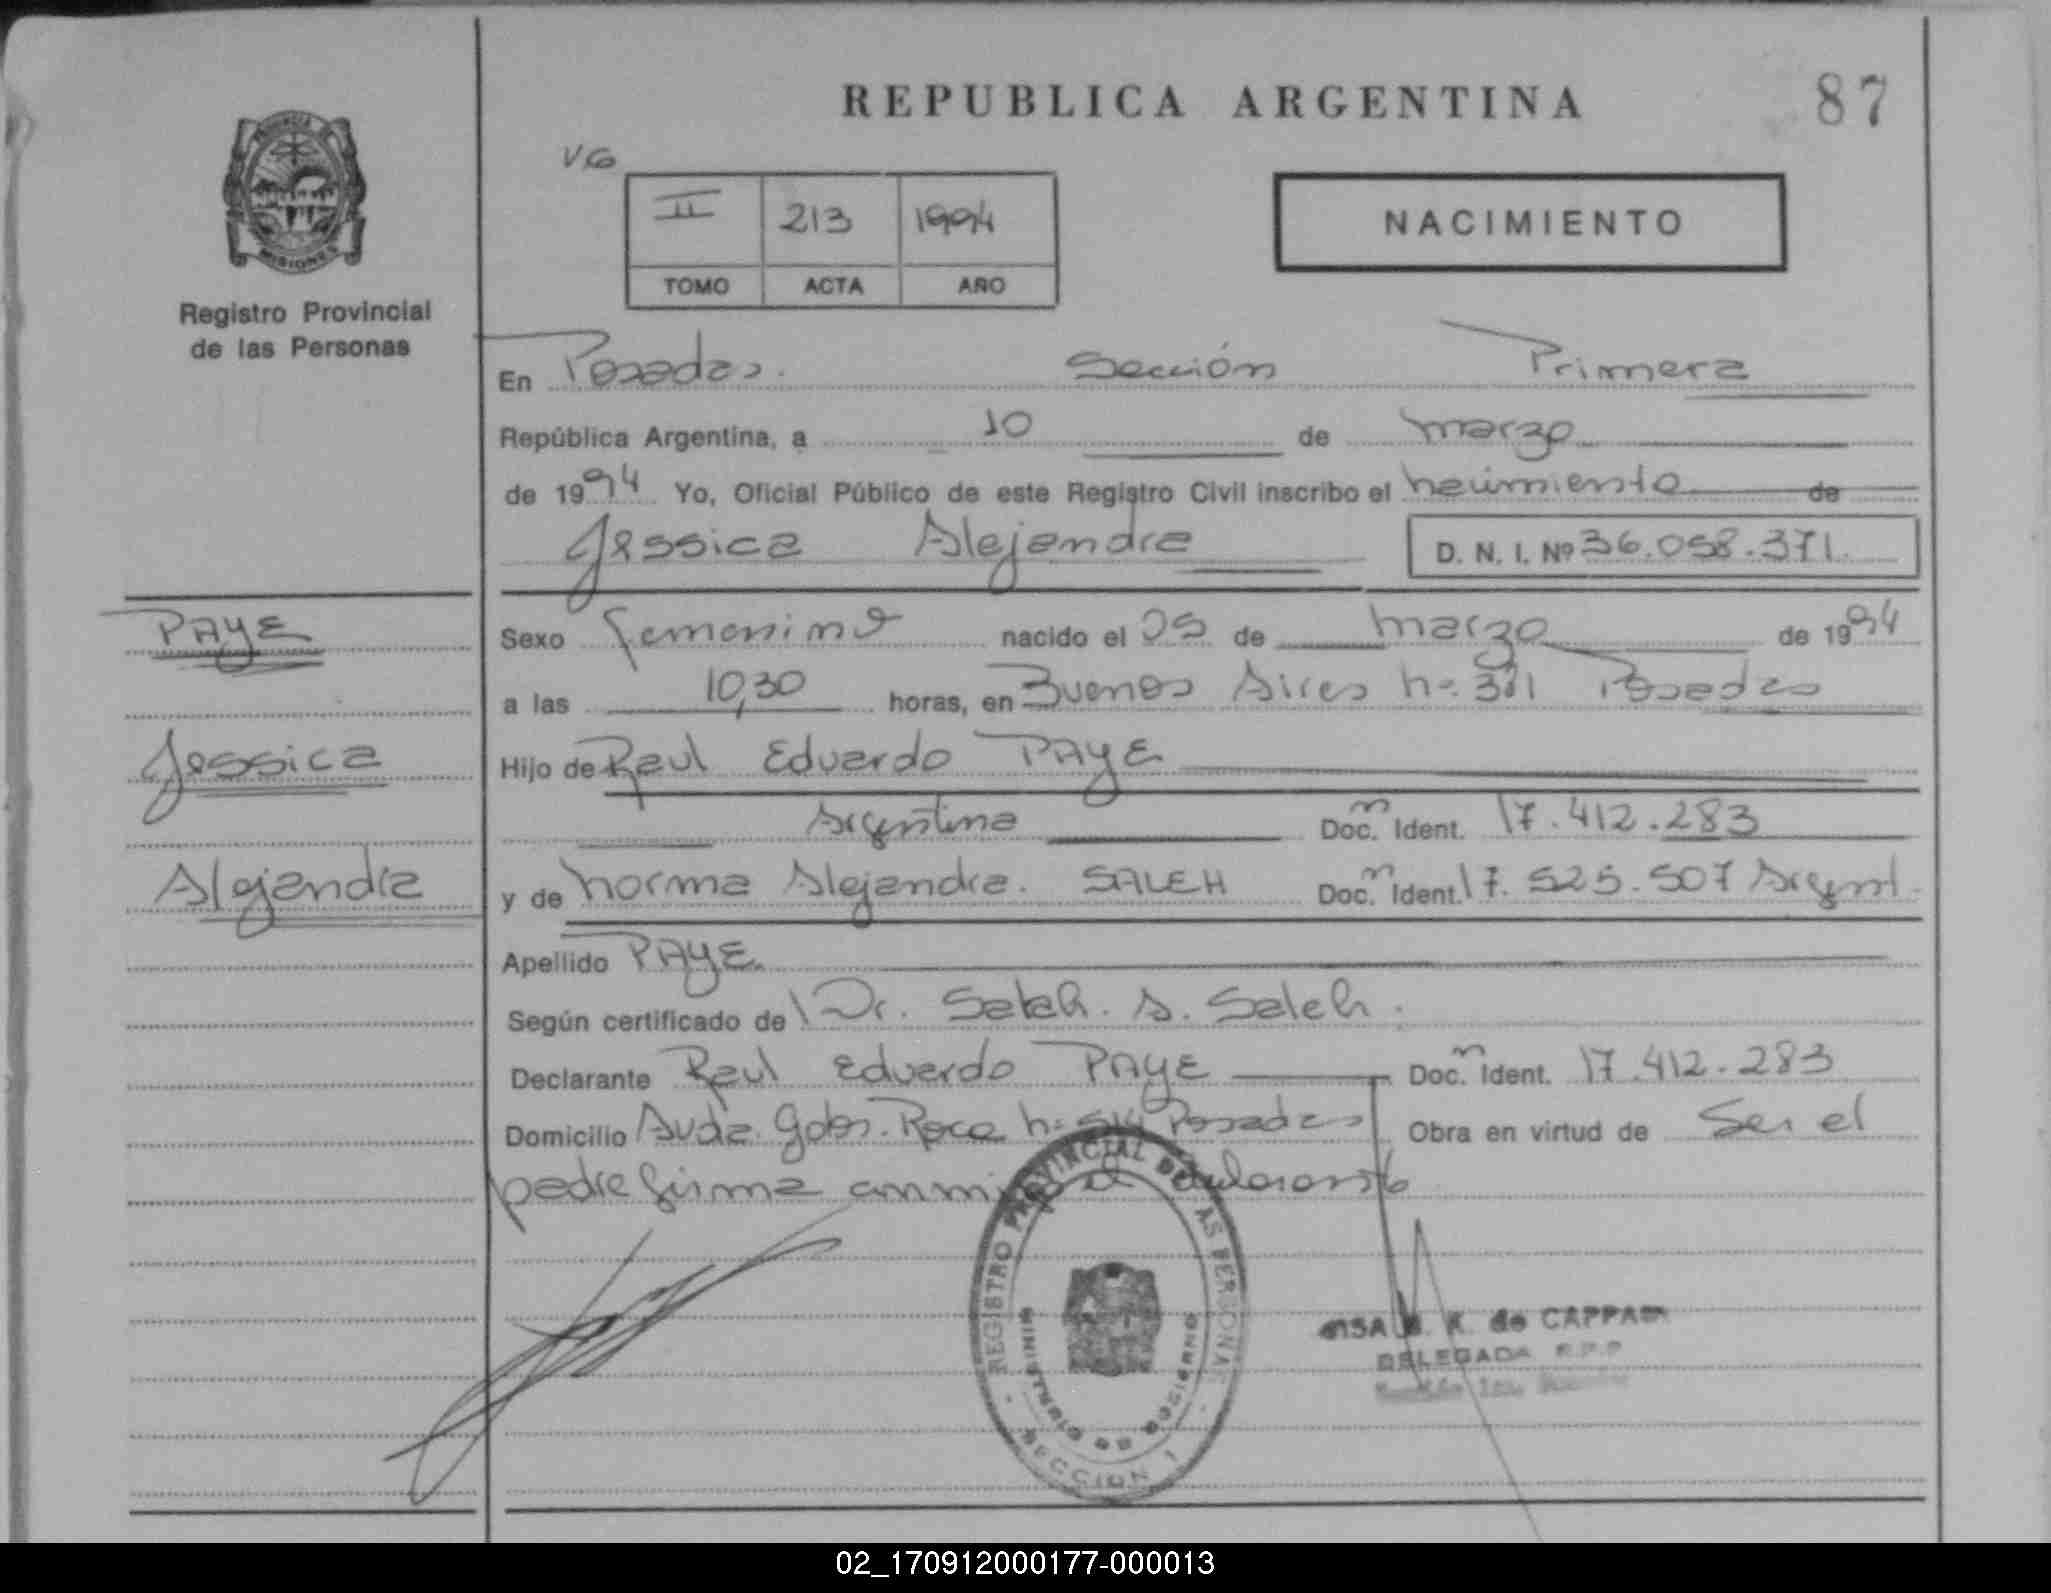 REPUBLICA ARGENTINA
87
PROVINCIA DE
MISIONES
Registro Provincial
de las Personas
VG
II 213 1994
TOMO ACTA AÑO
NACIMIENTO
En Posadas. Sección Primera
República Argentina, a 10 de marzo
de 1994 Yo, Oficial Público de este Registro Civil inscribo el nacimiento de
Jessica Alejandra
D. N. I. Nº 36.058.371.
PAYE
Sexo femenino nacido el 05 de marzo de 1994
a las 10,30 horas, en Buenos Aires nº Posadas
Jessica
Hijo de Raul Eduardo PAYE
Argentina Doc. Ident. 17.412.283
Alejandra
y de Norma Alejandra. SALEH Doc. Ident. 17.525.507 Argent.
Apellido PAYE
Según certificado de Dr. Saleh. A. Saleh.
Declarante Raul Eduardo PAYE Doc. Ident. 17.412.283
Domicilio Avda. Gobr. Roca nº Posadas Obra en virtud de Ser el
padre firma conmigo el declarante
REGISTRO PROVINCIAL DE LAS PERSONAS
MINISTERIO DE GOBIERNO
SECCION 1
de CAPPA
DELEGADA R.P.P
02_170912000177-000013